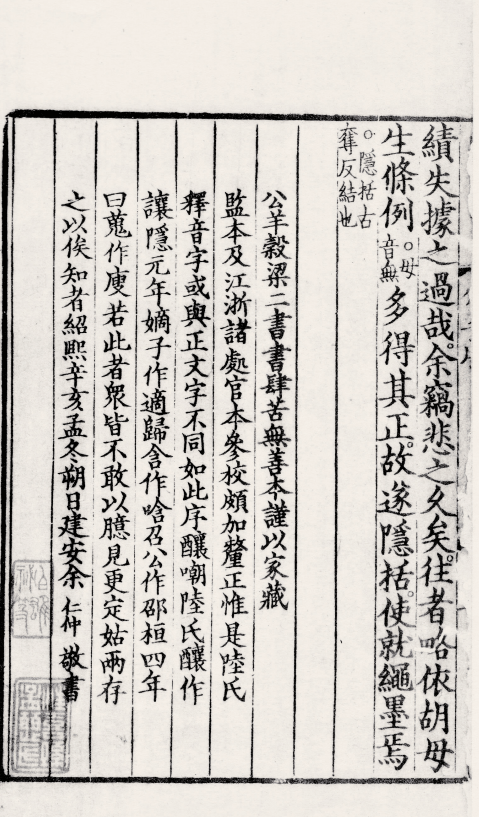 績失據之過哉余竊悲之久矣往者略依胡毋
生條例毋音無多得其正故遂隱括使就繩墨焉
隱括古
奪反結也
公羊穀梁二書書肆苦無善本謹以家藏
監本及江浙諸處官本參校頗加釐正惟是陸氏
釋音字或與正文字不同如此序釀嘲陸氏釀作
讓隱元年嫡子作適歸含作唅召公作邵桓四年
曰蒐作廋若此者衆皆不敢以臆見更定姑兩存
之以俟知者紹熙辛亥孟冬朔日建安余仁仲敬書